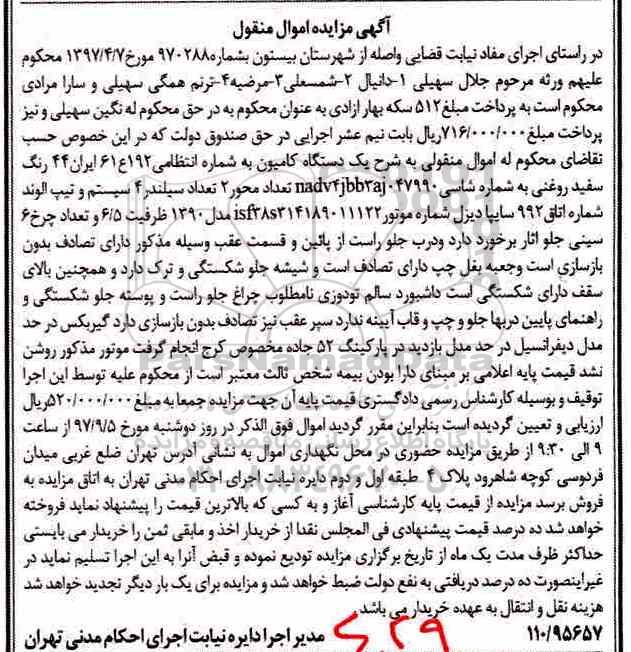 آگهی مزایده اموال منقول
در راستای اجرای مفاد نیابت قضایی واصله از شهرستان بیستون بشماره۹۷۰۲۸۸ مورخ۱۳۹۷/۴/۷ محکوم
علیهم ورثه مرحوم جلال سهیلی ۱-دانیال ۲-شمسعلی۳-مرضیه۴-ترنم همگی سهیلی و سارا مرادی
محکوم است به پرداخت مبلغ۵۱۲ سکه بهار ازادی به عنوان محکوم به در حق محکوم له نگین سهیلی و نیز
پرداخت مبلغ۷۱۶/۰۰۰/۰۰۰ریال بابت نیم عشر اجرایی در حق صندوق دولت که در این خصوص حسب
تقاضای محکوم له اموال منقولی به شرح یک دستگاه کامیون به شماره انتظامی۱۹۲ع۶۱ ایران۴۴ رنگ
سفید روغنی به شماره شاسی nadv۴jbb۲aj۰۴۷۹۹۰ تعداد محور۲ تعداد سیلندر۴ سیستم و تیپ الوند
شماره اتاق۹۹۲ سایپا دیزل شماره موتور isf۳۸s۳۱۴۱۸۹۰۱۱۱۲۲ مدل۱۳۹۰ ظرفیت ۶/۵ و تعداد چرخ۶
سینی جلو اثار برخورد دارد ودرب جلو راست از پائین و قسمت عقب وسیله مذکور دارای تصادف بدون
بازسازی است وجعبه بغل چپ دارای تصادف است و شیشه جلو شکستگی و ترک دارد و همچنین بالای
سقف دارای شکستگی است داشبورد سالم تودوزی نامطلوب چراغ جلو راست و پوسته جلو شکستگی و
راهنمای پایین دربها جلو و چپ و قاب آیینه ندارد سپر عقب نیز تصادف بدون بازسازی دارد گیربکس در حد
مدل دیفرانسیل در حد مدل بازدید در پارکینگ ۵۲ جاده مخصوص کرج انجام گرفت موتور مذکور روشن
نشد قیمت پایه اعلامی بر مبنای دارا بودن بیمه شخص ثالث معتبر است از محکوم علیه توسط این اجرا
توقیف و بوسیله کارشناس رسمی دادگستری قیمت پایه آن جهت مزایده جمعا به مبلغ۵۲۰/۰۰۰/۰۰۰ریال
ارزیابی و تعیین گردیده است بنابراین مقرر گردید اموال فوق الذکر در روز دوشنبه مورخ ۹۷/۹/۵ از ساعت
۹ الی ۹:۳۰ از طریق مزایده حضوری در محل نگهداری اموال به نشانی آدرس تهران ضلع غربی میدان
فردوسی کوچه شاهرود پلاک۴ طبقه اول و دوم دایره نیابت اجرای احکام مدنی تهران به اتاق مزایده به
فروش برسد مزایده از قیمت پایه کارشناسی آغاز و به کسی که بالاترین قیمت را پیشنهاد نماید فروخته
خواهد شد ده درصد قیمت پیشنهادی فی المجلس نقدا از خریدار اخذ و مابقی ثمن را خریدار می بایستی
حداکثر ظرف مدت یک ماه از تاریخ برگزاری مزایده تودیع نموده و قبض آنرا به این اجرا تسلیم نماید در
غیراینصورت ده درصد دریافتی به نفع دولت ضبط خواهد شد و مزایده برای یک بار دیگر تجدید خواهد شد
هزینه نقل و انتقال به عهده خریدار می باشد
۱۱۰/۹۵۶۵۷ مدیر اجرا دایره نیابت اجرای احکام مدنی تهران